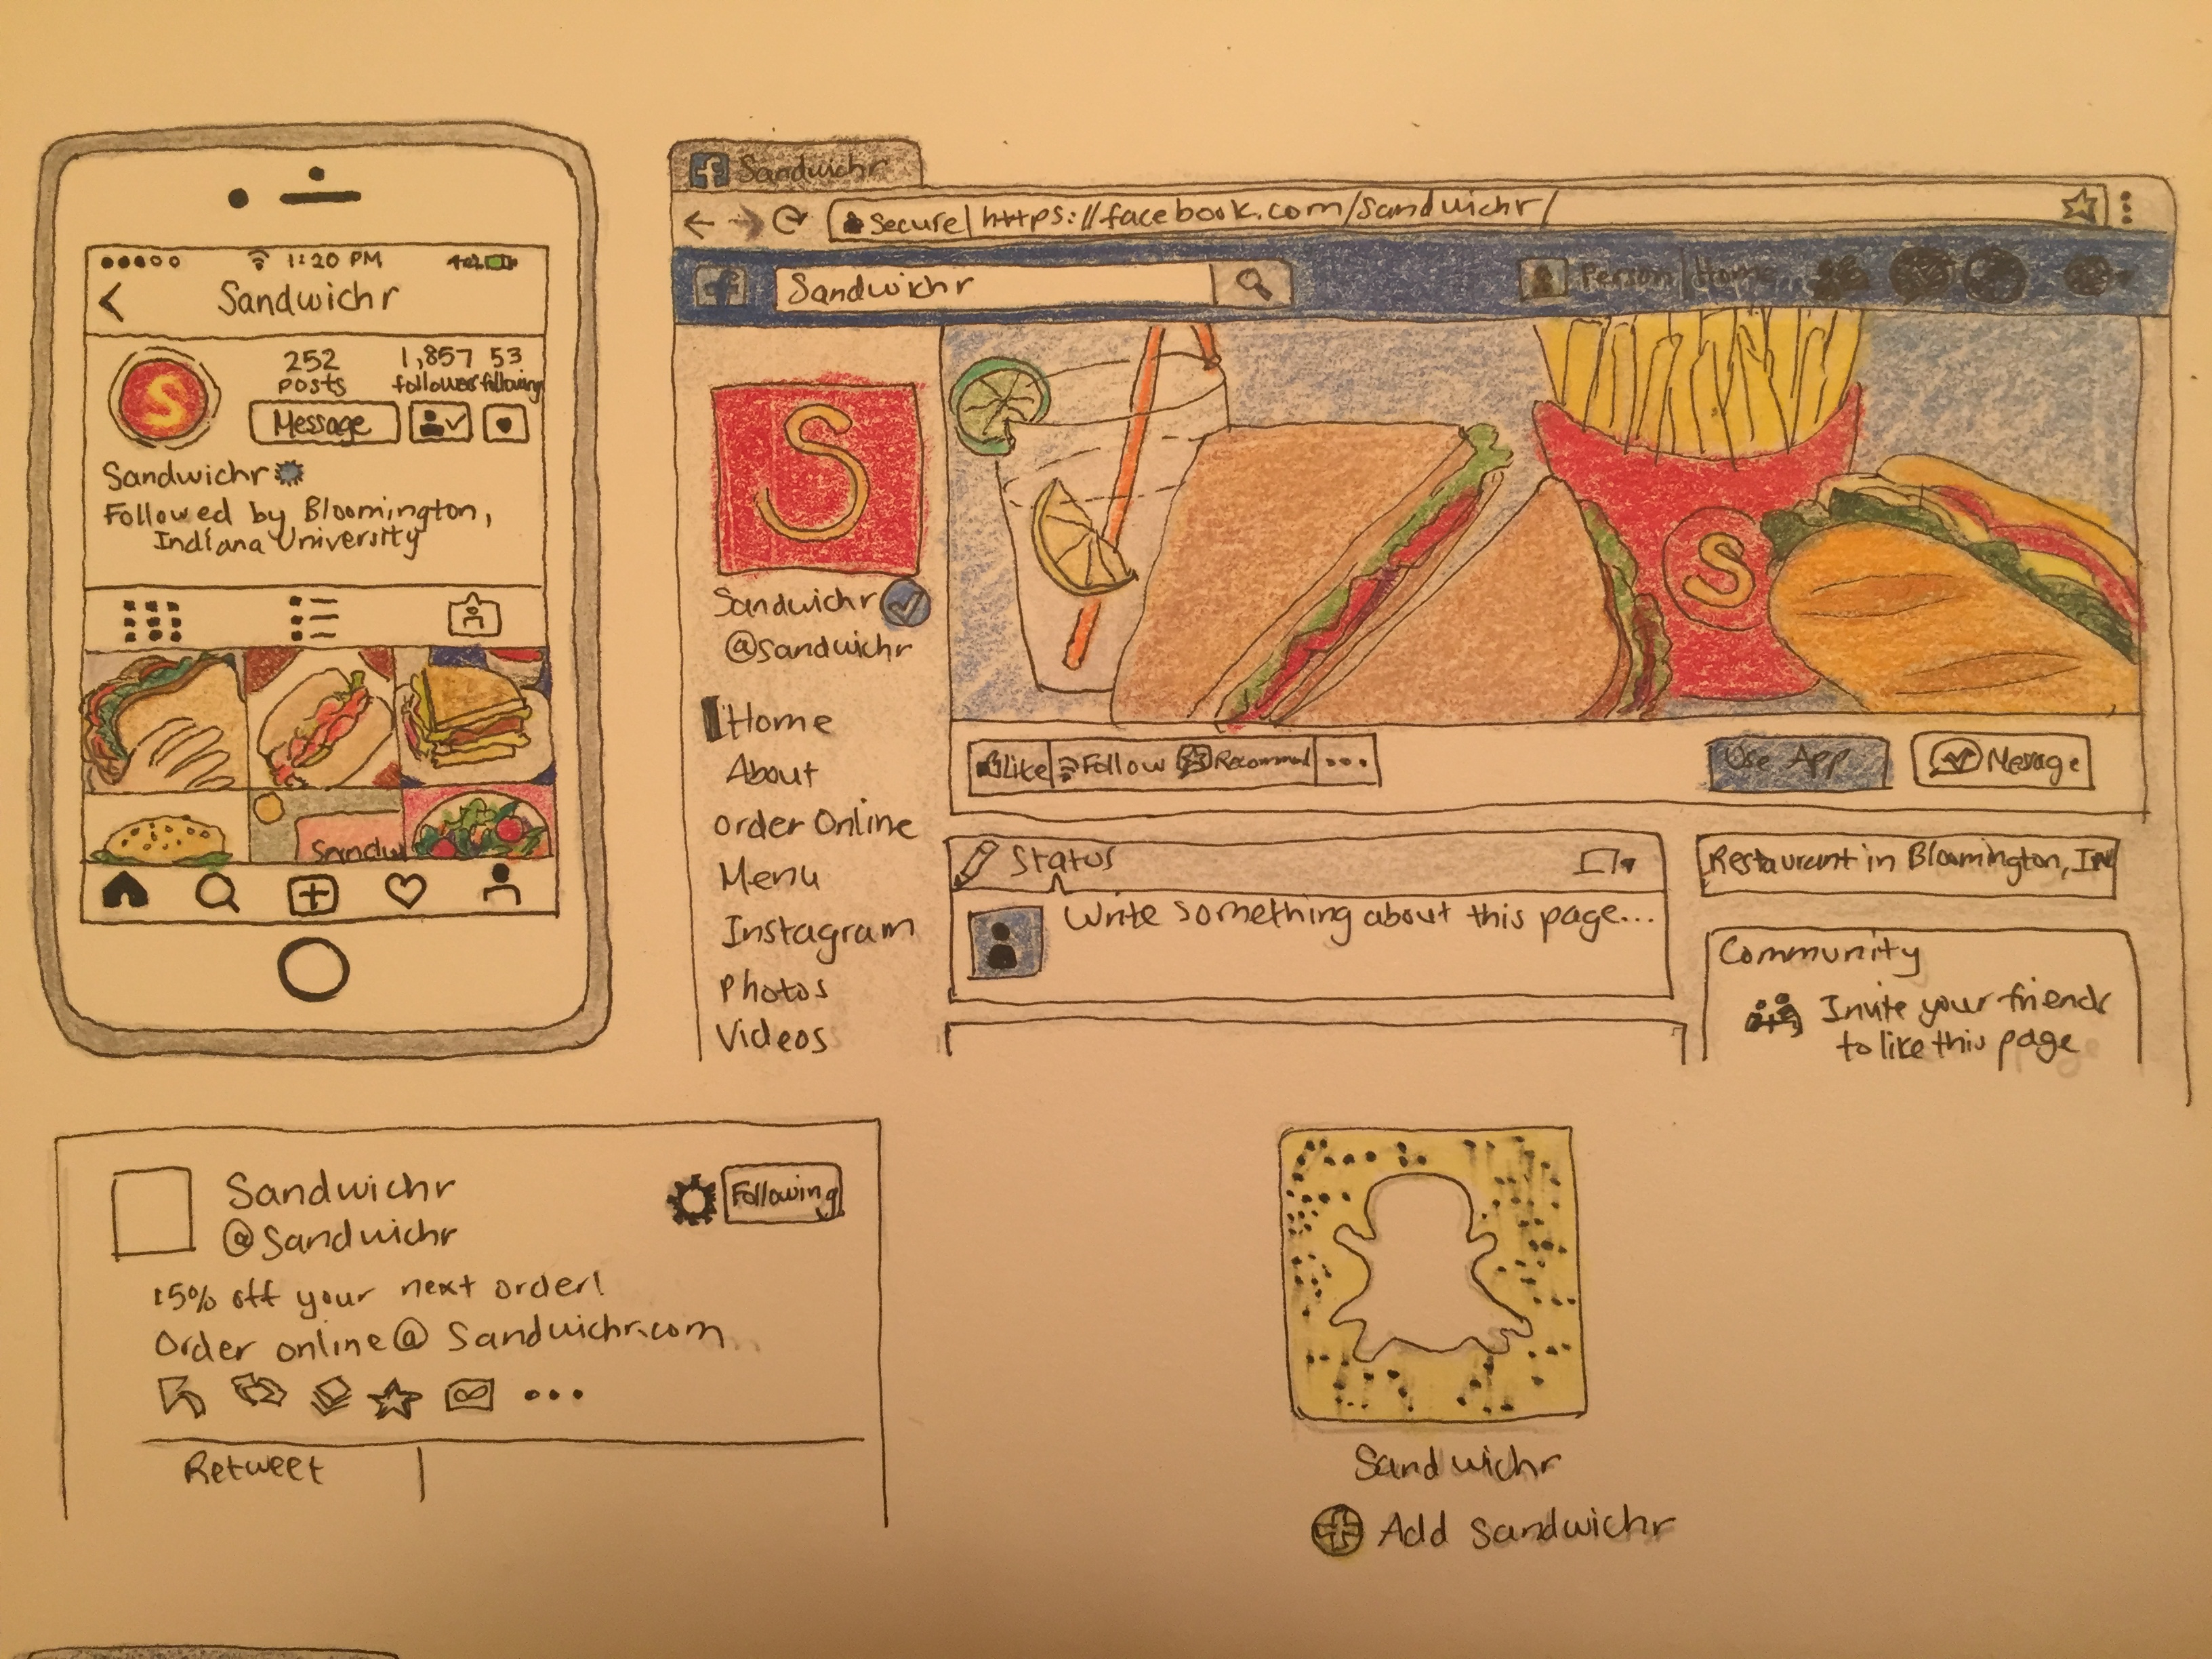 1:20 PM
Sandwichr
S
252 1,857 53
posts follower following
Message
Sandwichr
Followed by Bloomington,
Indiana University
Sandw
f Sandwichr
Secure | https://facebook.com/Sandwichr/
f Sandwichr
Person | Home
S
Sandwichr
@sandwichr
Home
About
Order Online
Menu
Instagram
Photos
Videos
S
Like Follow Recommend ...
Use App Message
Status
Write something about this page...
Restaurant in Bloomington, IN
Community
Invite your friends
to like this page
Sandwichr
@Sandwichr
Following
15% off your next order!
Order online @ Sandwichr.com
...
Retweet
Sandwichr
Add Sandwichr